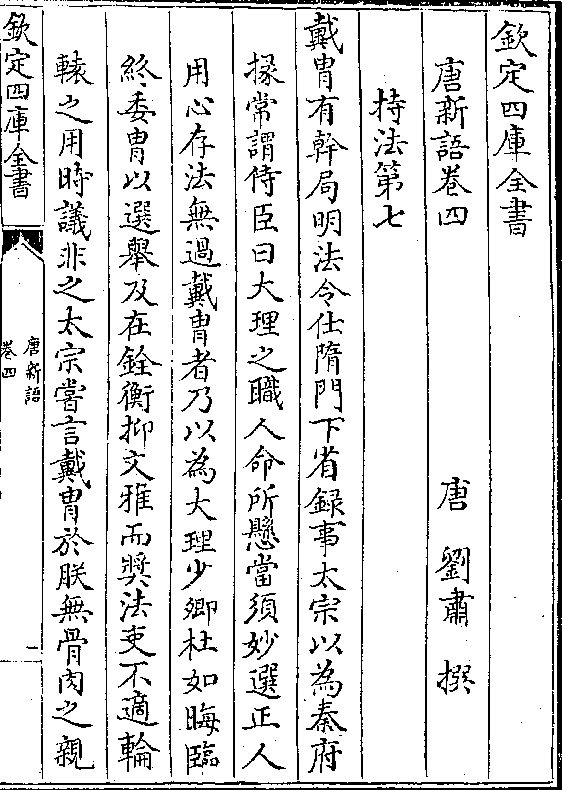 欽定四庫全書
唐新語卷四
唐 劉肅 撰
持法第七
戴胄有幹局明法令仕隋門下省録事太宗以為秦府
掾常謂侍臣曰大理之職人命所懸當須妙選正人
用心存法無過戴胄者乃以為大理少卿杜如晦臨
終委胄以選舉及在銓衡抑文雅而奨法吏不適輪
轅之用時議非之太宗嘗言戴胄於朕無骨肉之親
欽定四庫全書
唐新語
卷四
一